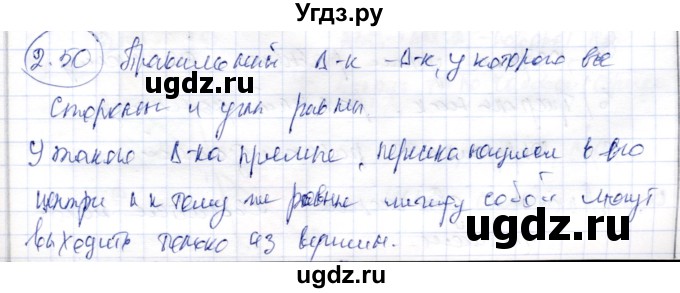 Угдз.ру
2.50 Правильный Δ-к – Δ-к, у которого все
ugdz.ru ugdz.ru
стороны и углы равны.
У такого Δ-ка прямые, пересекающиеся в его
ugdz.ru ugdz.ru
центре и к тому же равные между собой могут
выходить только из вершин.
ugdz.ru ugdz.ru
ugdz.ru